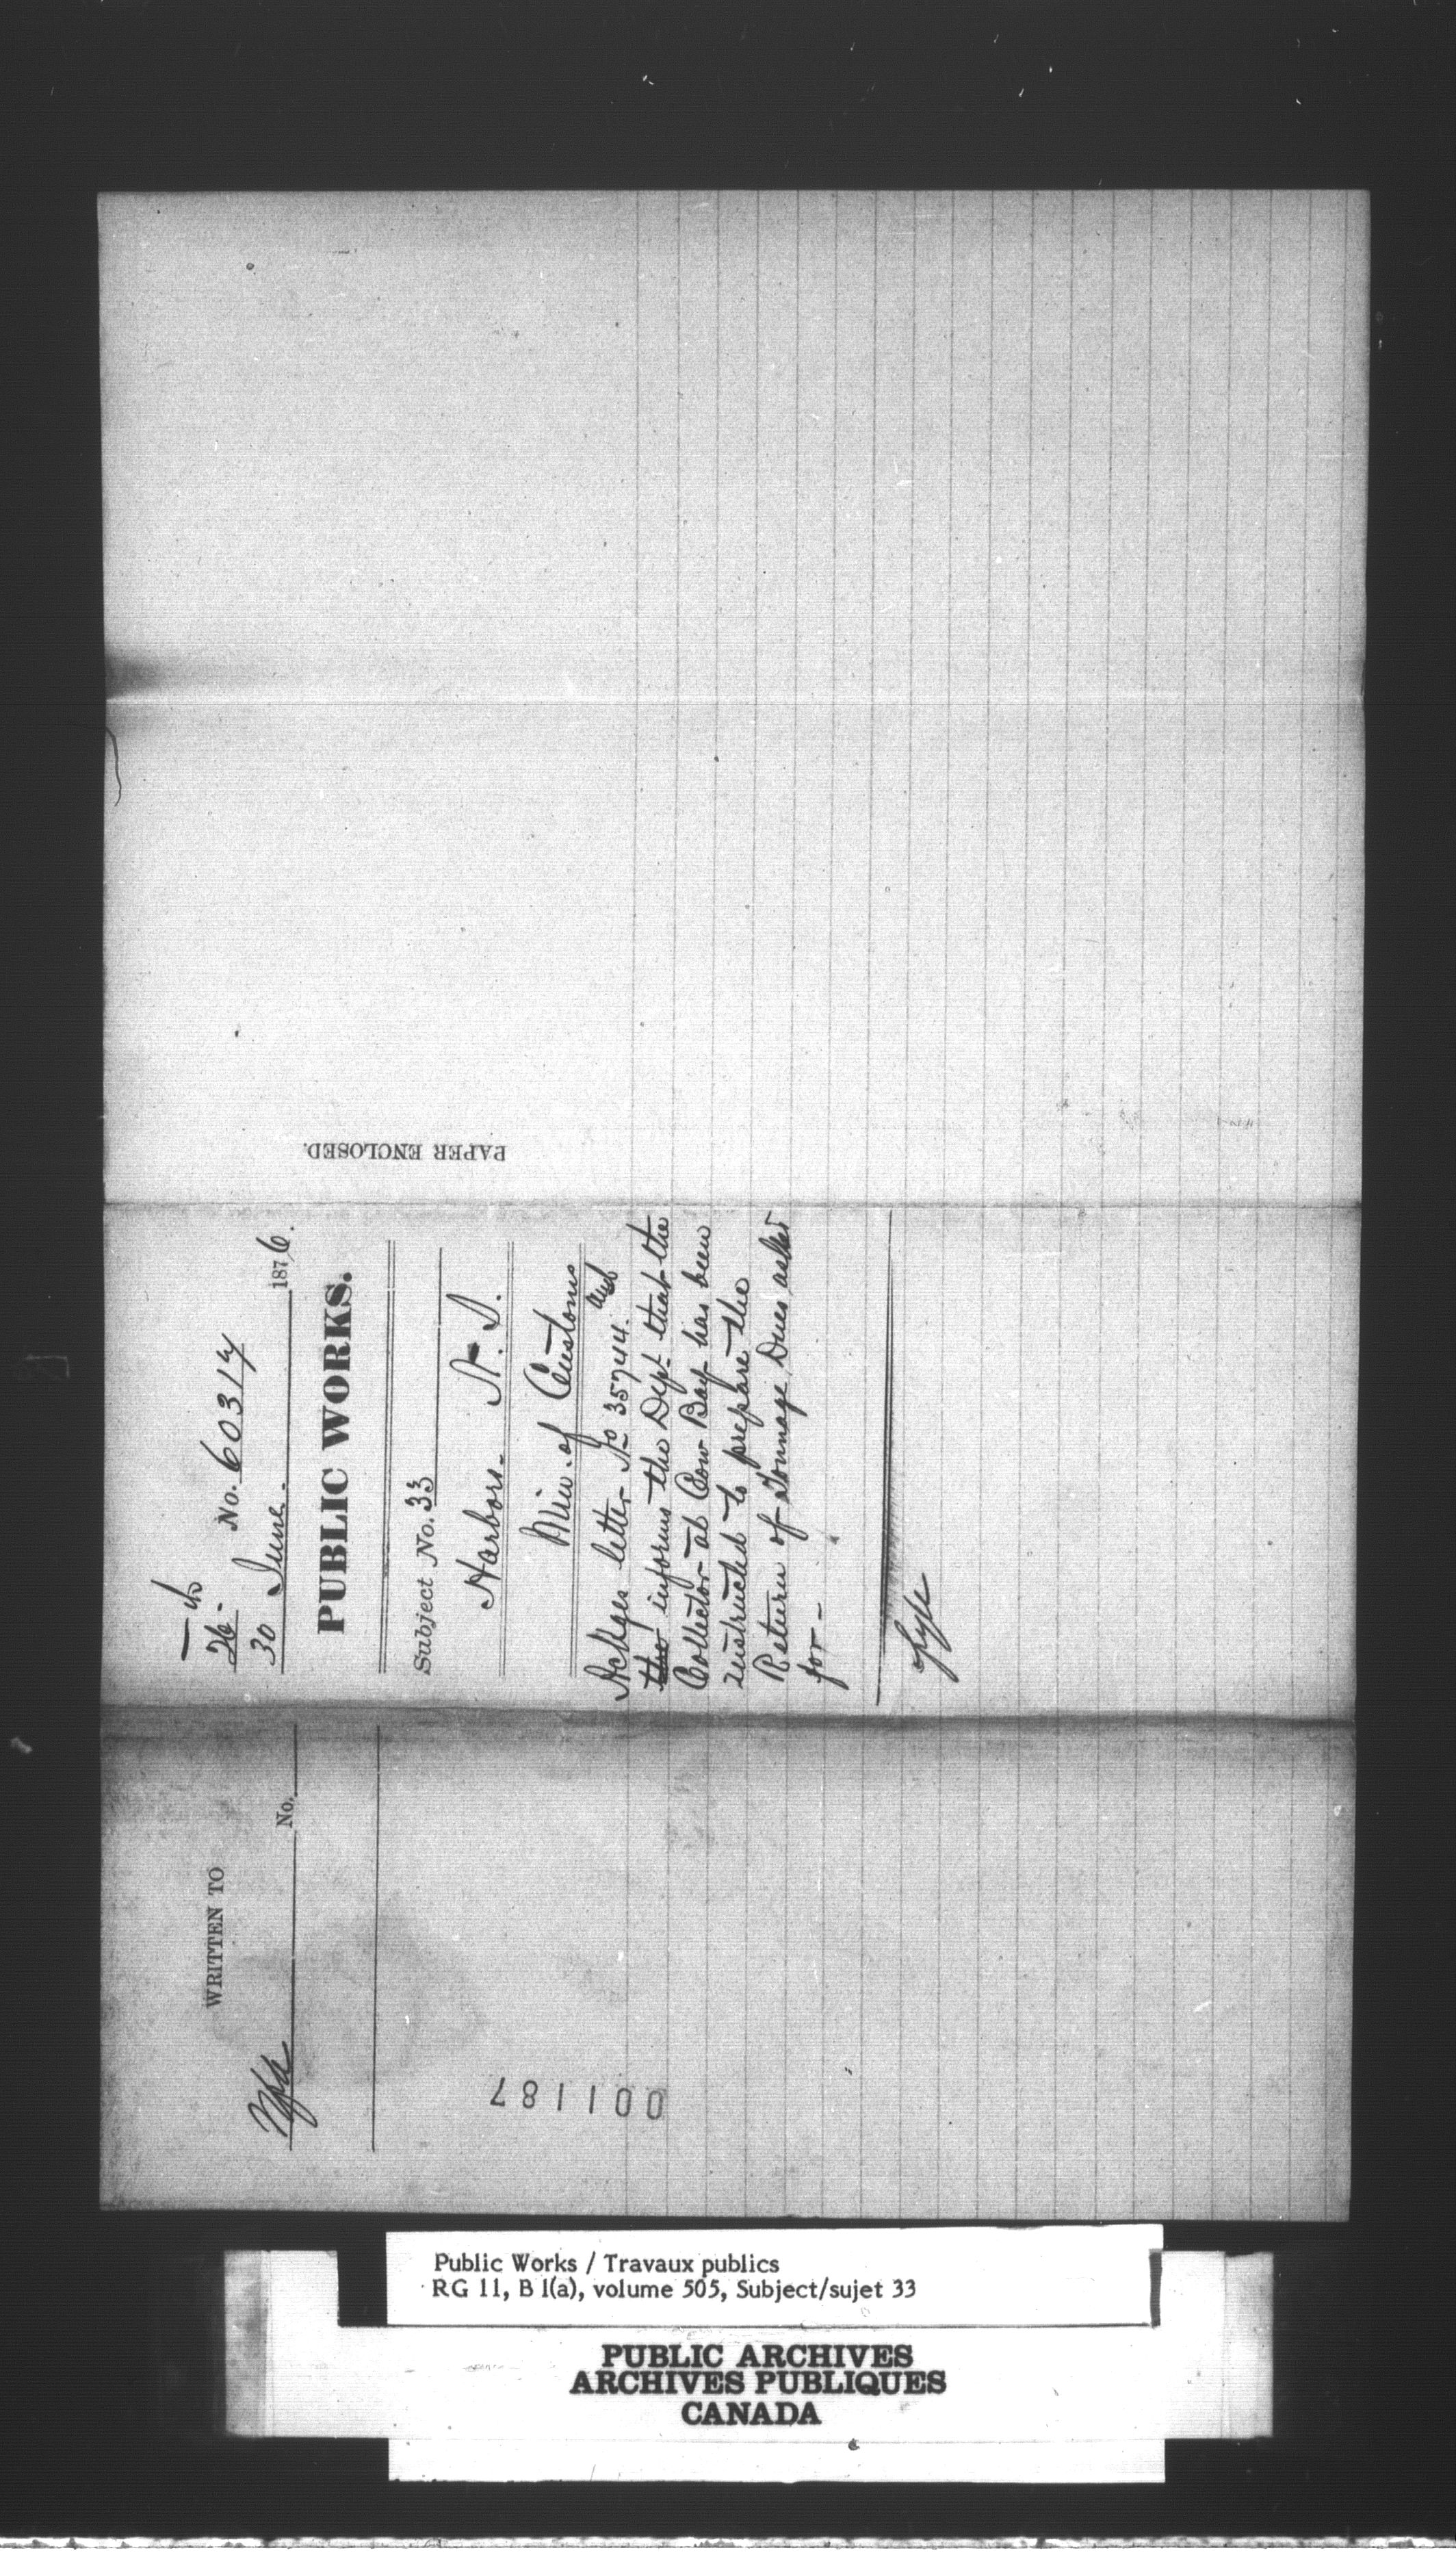 No. 60317
30 June. 1876.
PUBLIC WORKS.
Subject No. 33
Harbors N.S.
Min. of Customs
Ackges letter No 35744. and
the informs the Dept that the
Collector at Cow Bay has been
instructed to prepare the
Return of Tonnage Dues asked
for -
PAPER ENCLOSED.
WRITTEN TO
No.
001187
Public Works / Travaux publics
RG 11, B 1(a), volume 505, Subject/sujet 33
PUBLIC ARCHIVES
ARCHIVES PUBLIQUES
CANADA